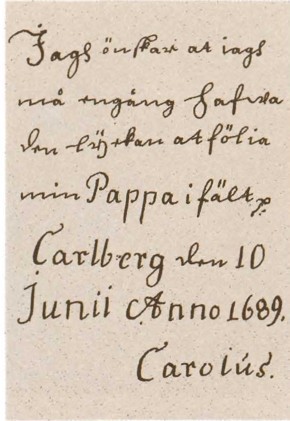 Jagh önskar at iagh
må engång hafwa
den lyckan at fölia
min Pappa i fält
Carlberg den 10
Junii Anno 1689.
Carolús.